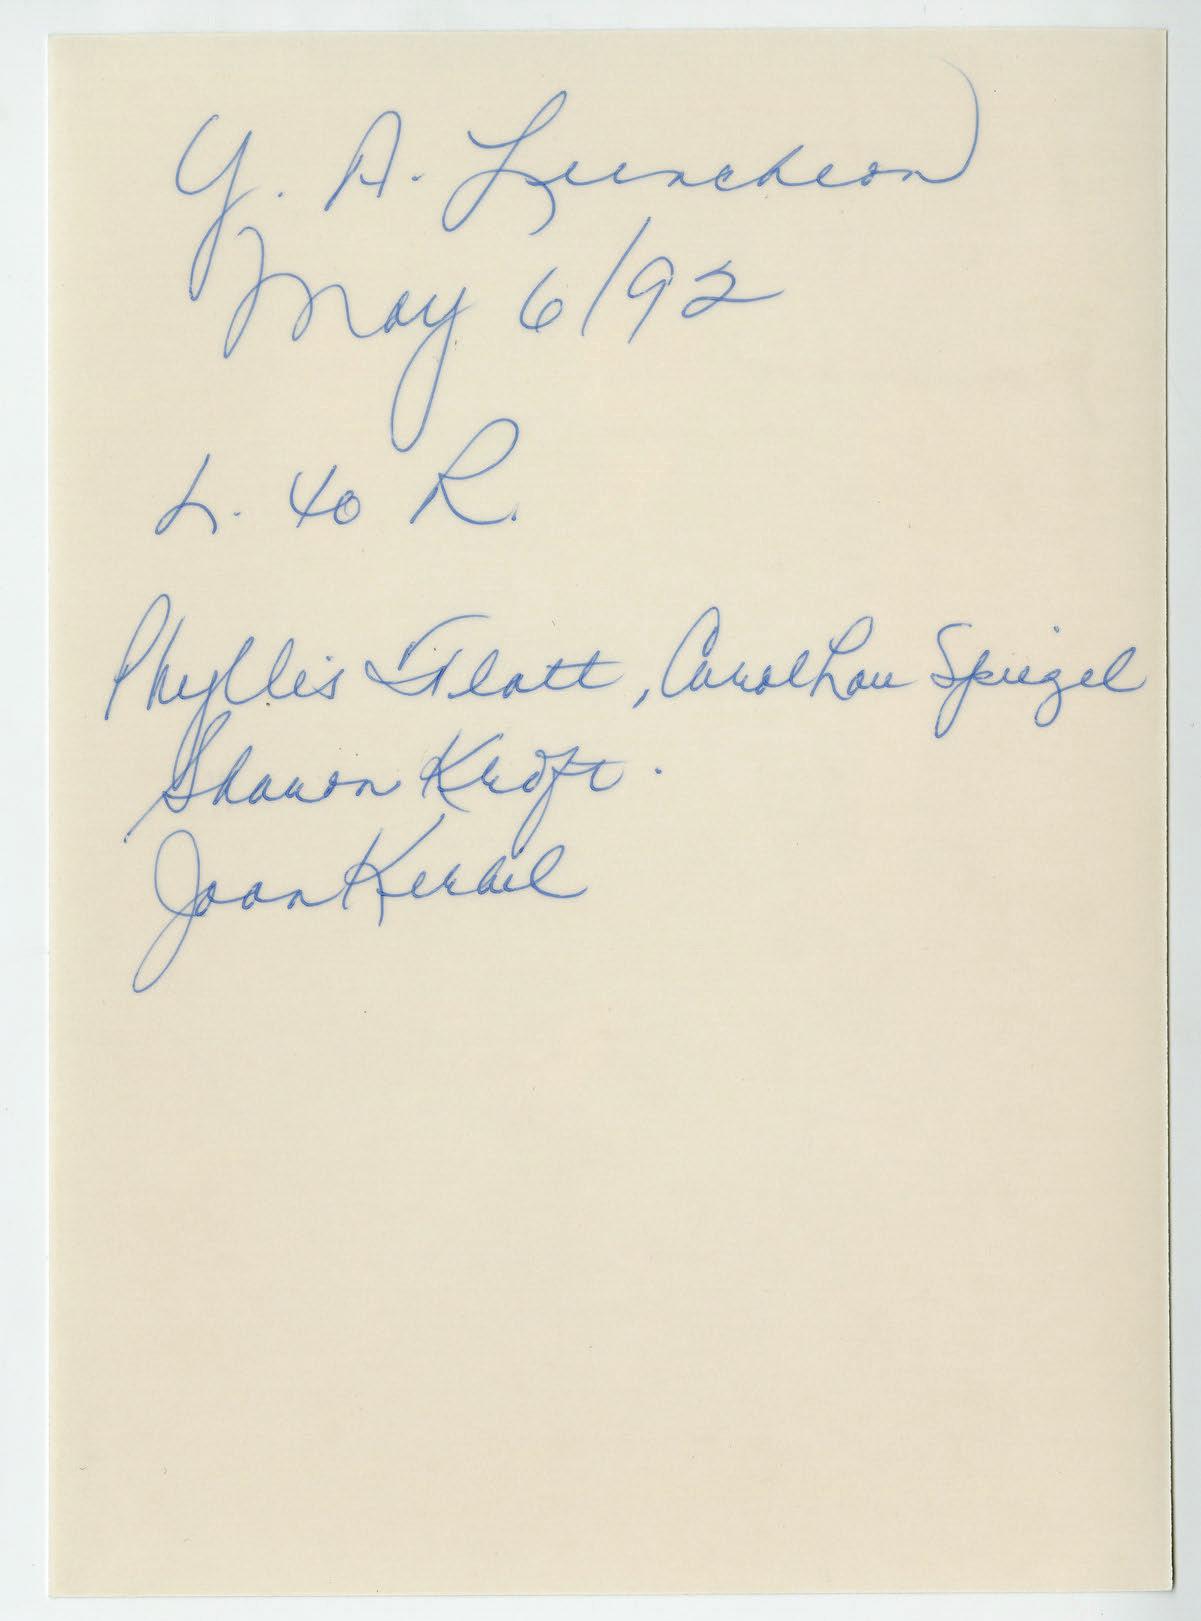 Y. A. Luncheon
May 6/92
L. to R.
Phyllis Flatt, Carol Lou Spiegel
Sharon Kroft.
Joan Kerbel